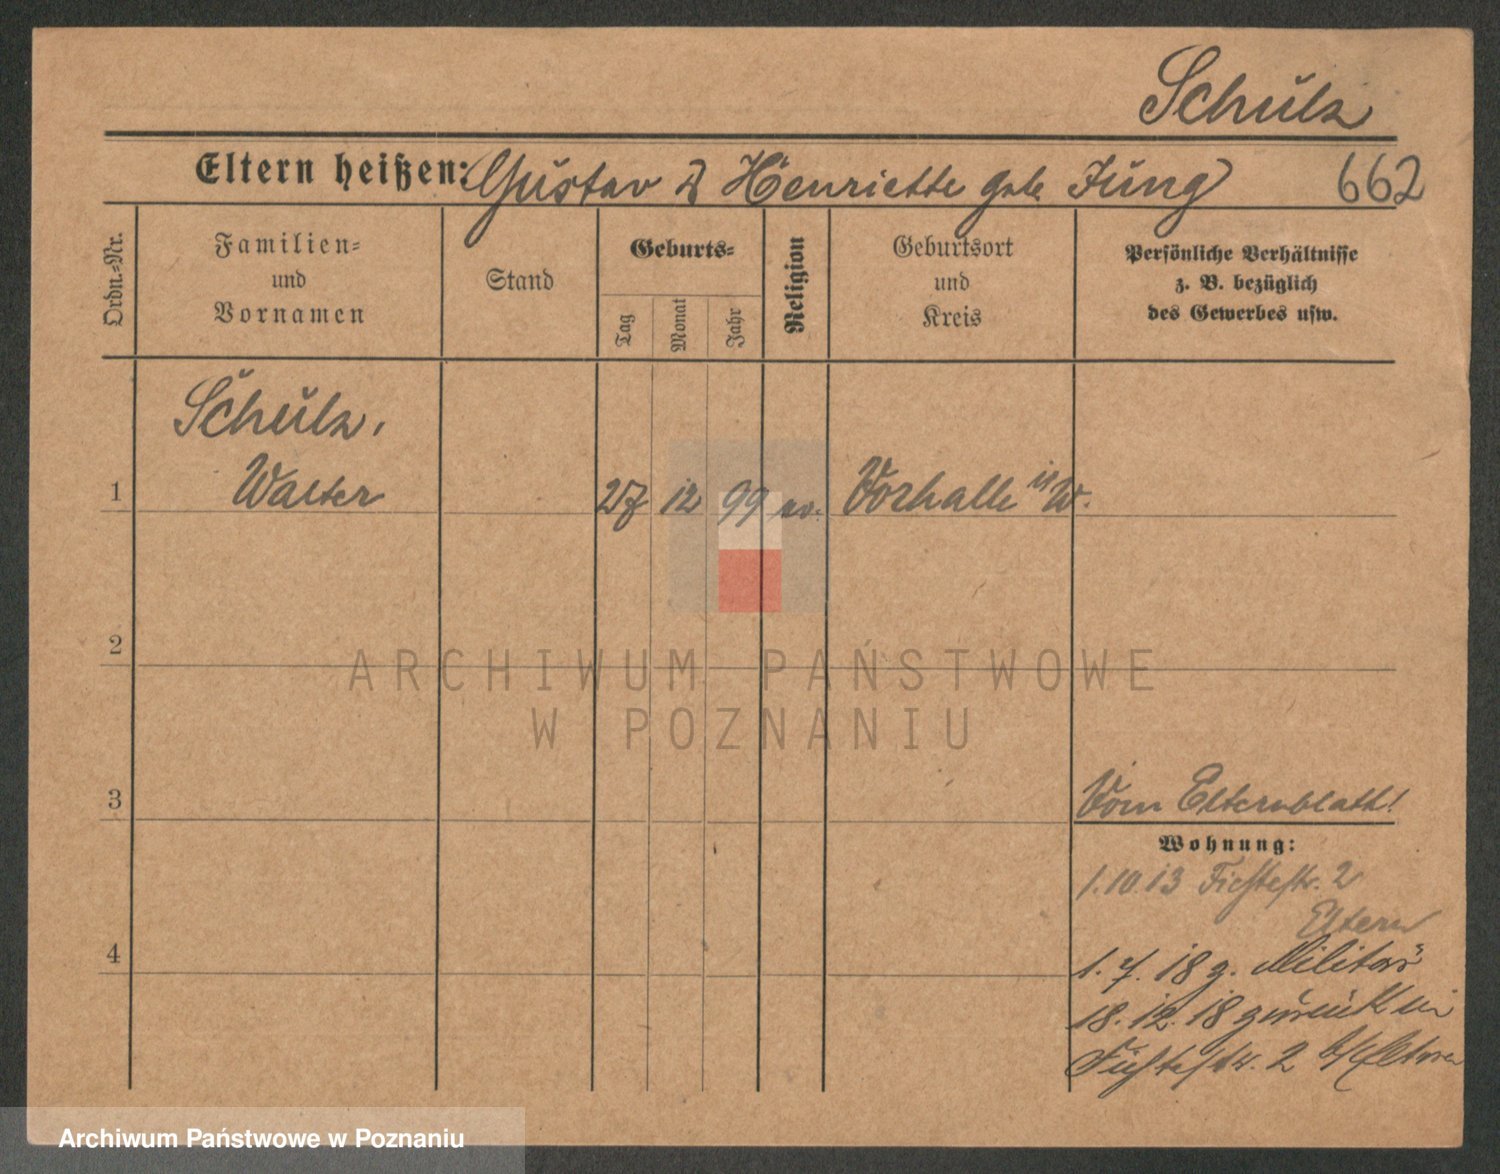 Schulz
Eltern heißen: Gustav & Henriette geb. Jung 662
Ordn.-Nr.
Familien-
und
Vornamen
Stand
Geburts-
Tag
Monat
Jahr
Religion
Geburtsort
und
Kreis
Persönliche Verhältnisse
z. B. bezüglich
des Gewerbes usw.
Schulz,
1 Walter 27 12 99 ev. Vorhalle i/W.
2
ARCHIWUM PAŃSTWOWE
W POZNANIU
3 Vom Elternblatt!
Wohnung:
1.10.13 Fichtestr. 2
Eltern
4 1.7.18 z. Militär
18.12.18 zurück in
Fichtestr. 2 b/Eltern
Archiwum Państwowe w Poznaniu